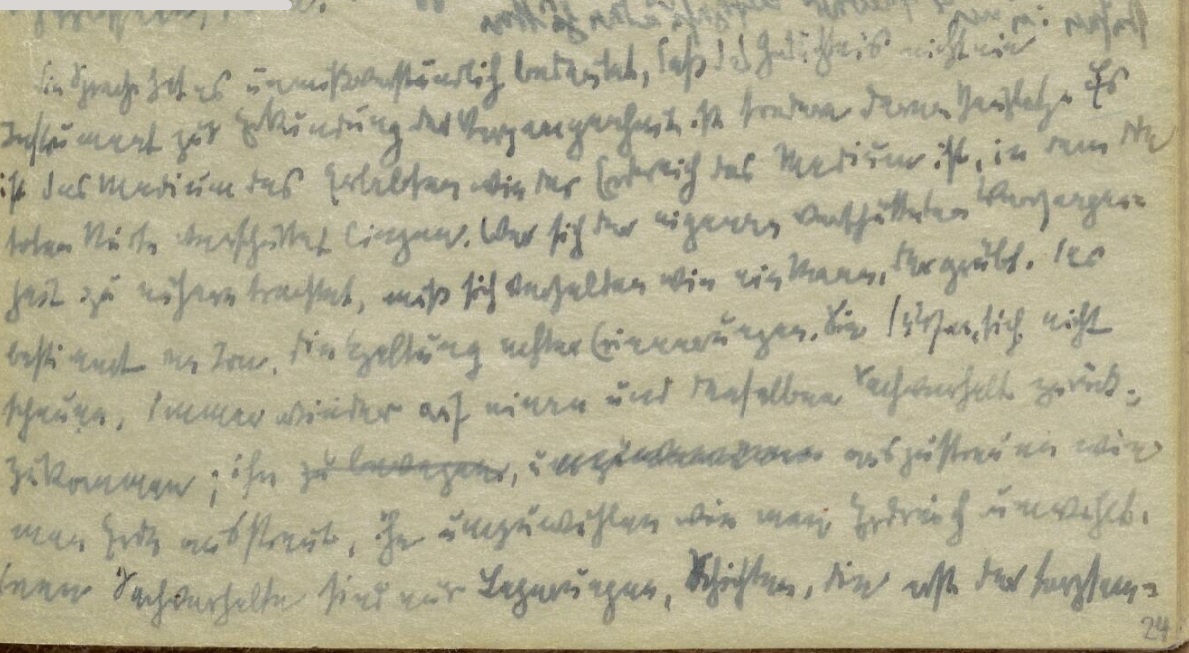 Die Sprache hat es unmißverständlich bedeutet, daß das Gedächtnis nicht ein
Instrument zur Erkundung der Vergangenheit ist sondern deren Schauplatz. Es
ist das Medium des Erlebten wie das Erdreich das Medium ist, in dem die
toten Städte verschüttet liegen. Wer sich der eigenen verschütteten Vergangen-
heit zu nähern trachtet, muß sich verhalten wie ein Mann, der gräbt. Das
bestimmt den Ton, die Haltung echter Erinnerungen. Sie dürfen sich nicht
scheuen, immer wieder auf einen und denselben Sachverhalt zurück-
zukommen; ihn zu bewegen, auszustreuen wie
man Erde ausstreut, ihn umzuwühlen wie man Erdreich umwühlt.
Denn Sachverhalte sind nur Lagerungen, Schichten, die erst der sorgsam-
24